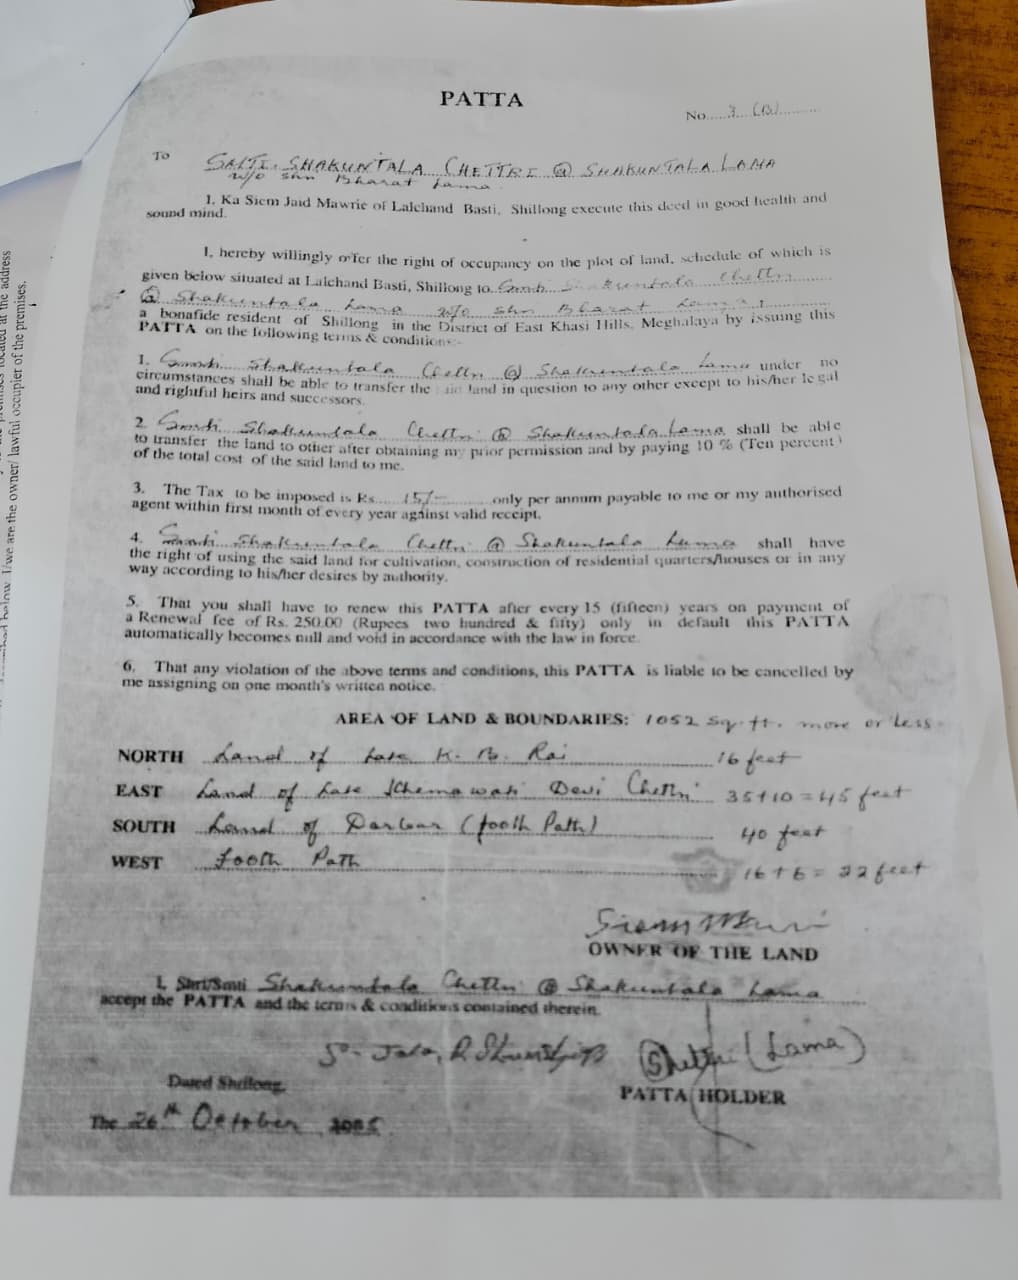 PATTA
No. 3 (B)
To SMTI. SHAKUNTALA CHETTRI @ SHAKUNTALA LAMA
w/o Shri Bharat Lama
I, Ka Siem Jaid Mawrie of Lalchand Basti, Shillong execute this deed in good health and
sound mind.
I, hereby willingly offer the right of occupancy on the plot of land, schedule of which is
given below situated at Lalchand Basti, Shillong to Smti Shakuntala Chettri
@ Shakuntala Lama w/o Shri Bharat Lama,
a bonafide resident of Shillong in the District of East Khasi Hills, Meghalaya by issuing this
PATTA on the following terms & conditions:-
1. Smti Shakuntala Chettri @ Shakuntala Lama under no
circumstances shall be able to transfer the land in question to any other except to his/her legal
and rightful heirs and successors.
2. Smti Shakuntala Chettri @ Shakuntala Lama shall be able
to transfer the land to other after obtaining my prior permission and by paying 10 % (Ten percent)
of the total cost of the said land to me.
3. The Tax to be imposed is Rs. 15/- only per annum payable to me or my authorised
agent within first month of every year against valid receipt.
4. Smti Shakuntala Chettri @ Shakuntala Lama shall have
the right of using the said land for cultivation, construction of residential quarters/houses or in any
way according to his/her desires by authority.
5. That you shall have to renew this PATTA after every 15 (fifteen) years on payment of
a Renewal fee of Rs. 250.00 (Rupees two hundred & fifty) only in default this PATTA
automatically becomes null and void in accordance with the law in force.
6. That any violation of the above terms and conditions, this PATTA is liable to be cancelled by
me assigning on one month's written notice.
AREA OF LAND & BOUNDARIES: 1052 sq. ft. more or less
NORTH Land of Late K. B. Rai 16 feet
EAST Land of Late Khemawati Devi Chettri 35+10=45 feet
SOUTH Land of Darbar (footh Path) 40 feet
WEST footh Path 16+6=22 feet
OWNER OF THE LAND
I, Shri/Smti Shakuntala Chettri @ Shakuntala Lama
accept the PATTA and the terms & conditions contained therein.
(Lama)
Dated Shillong, PATTA HOLDER
The 26th October
the premises located at the address
described below. I/we are the owner/ lawful occupier of the premises.